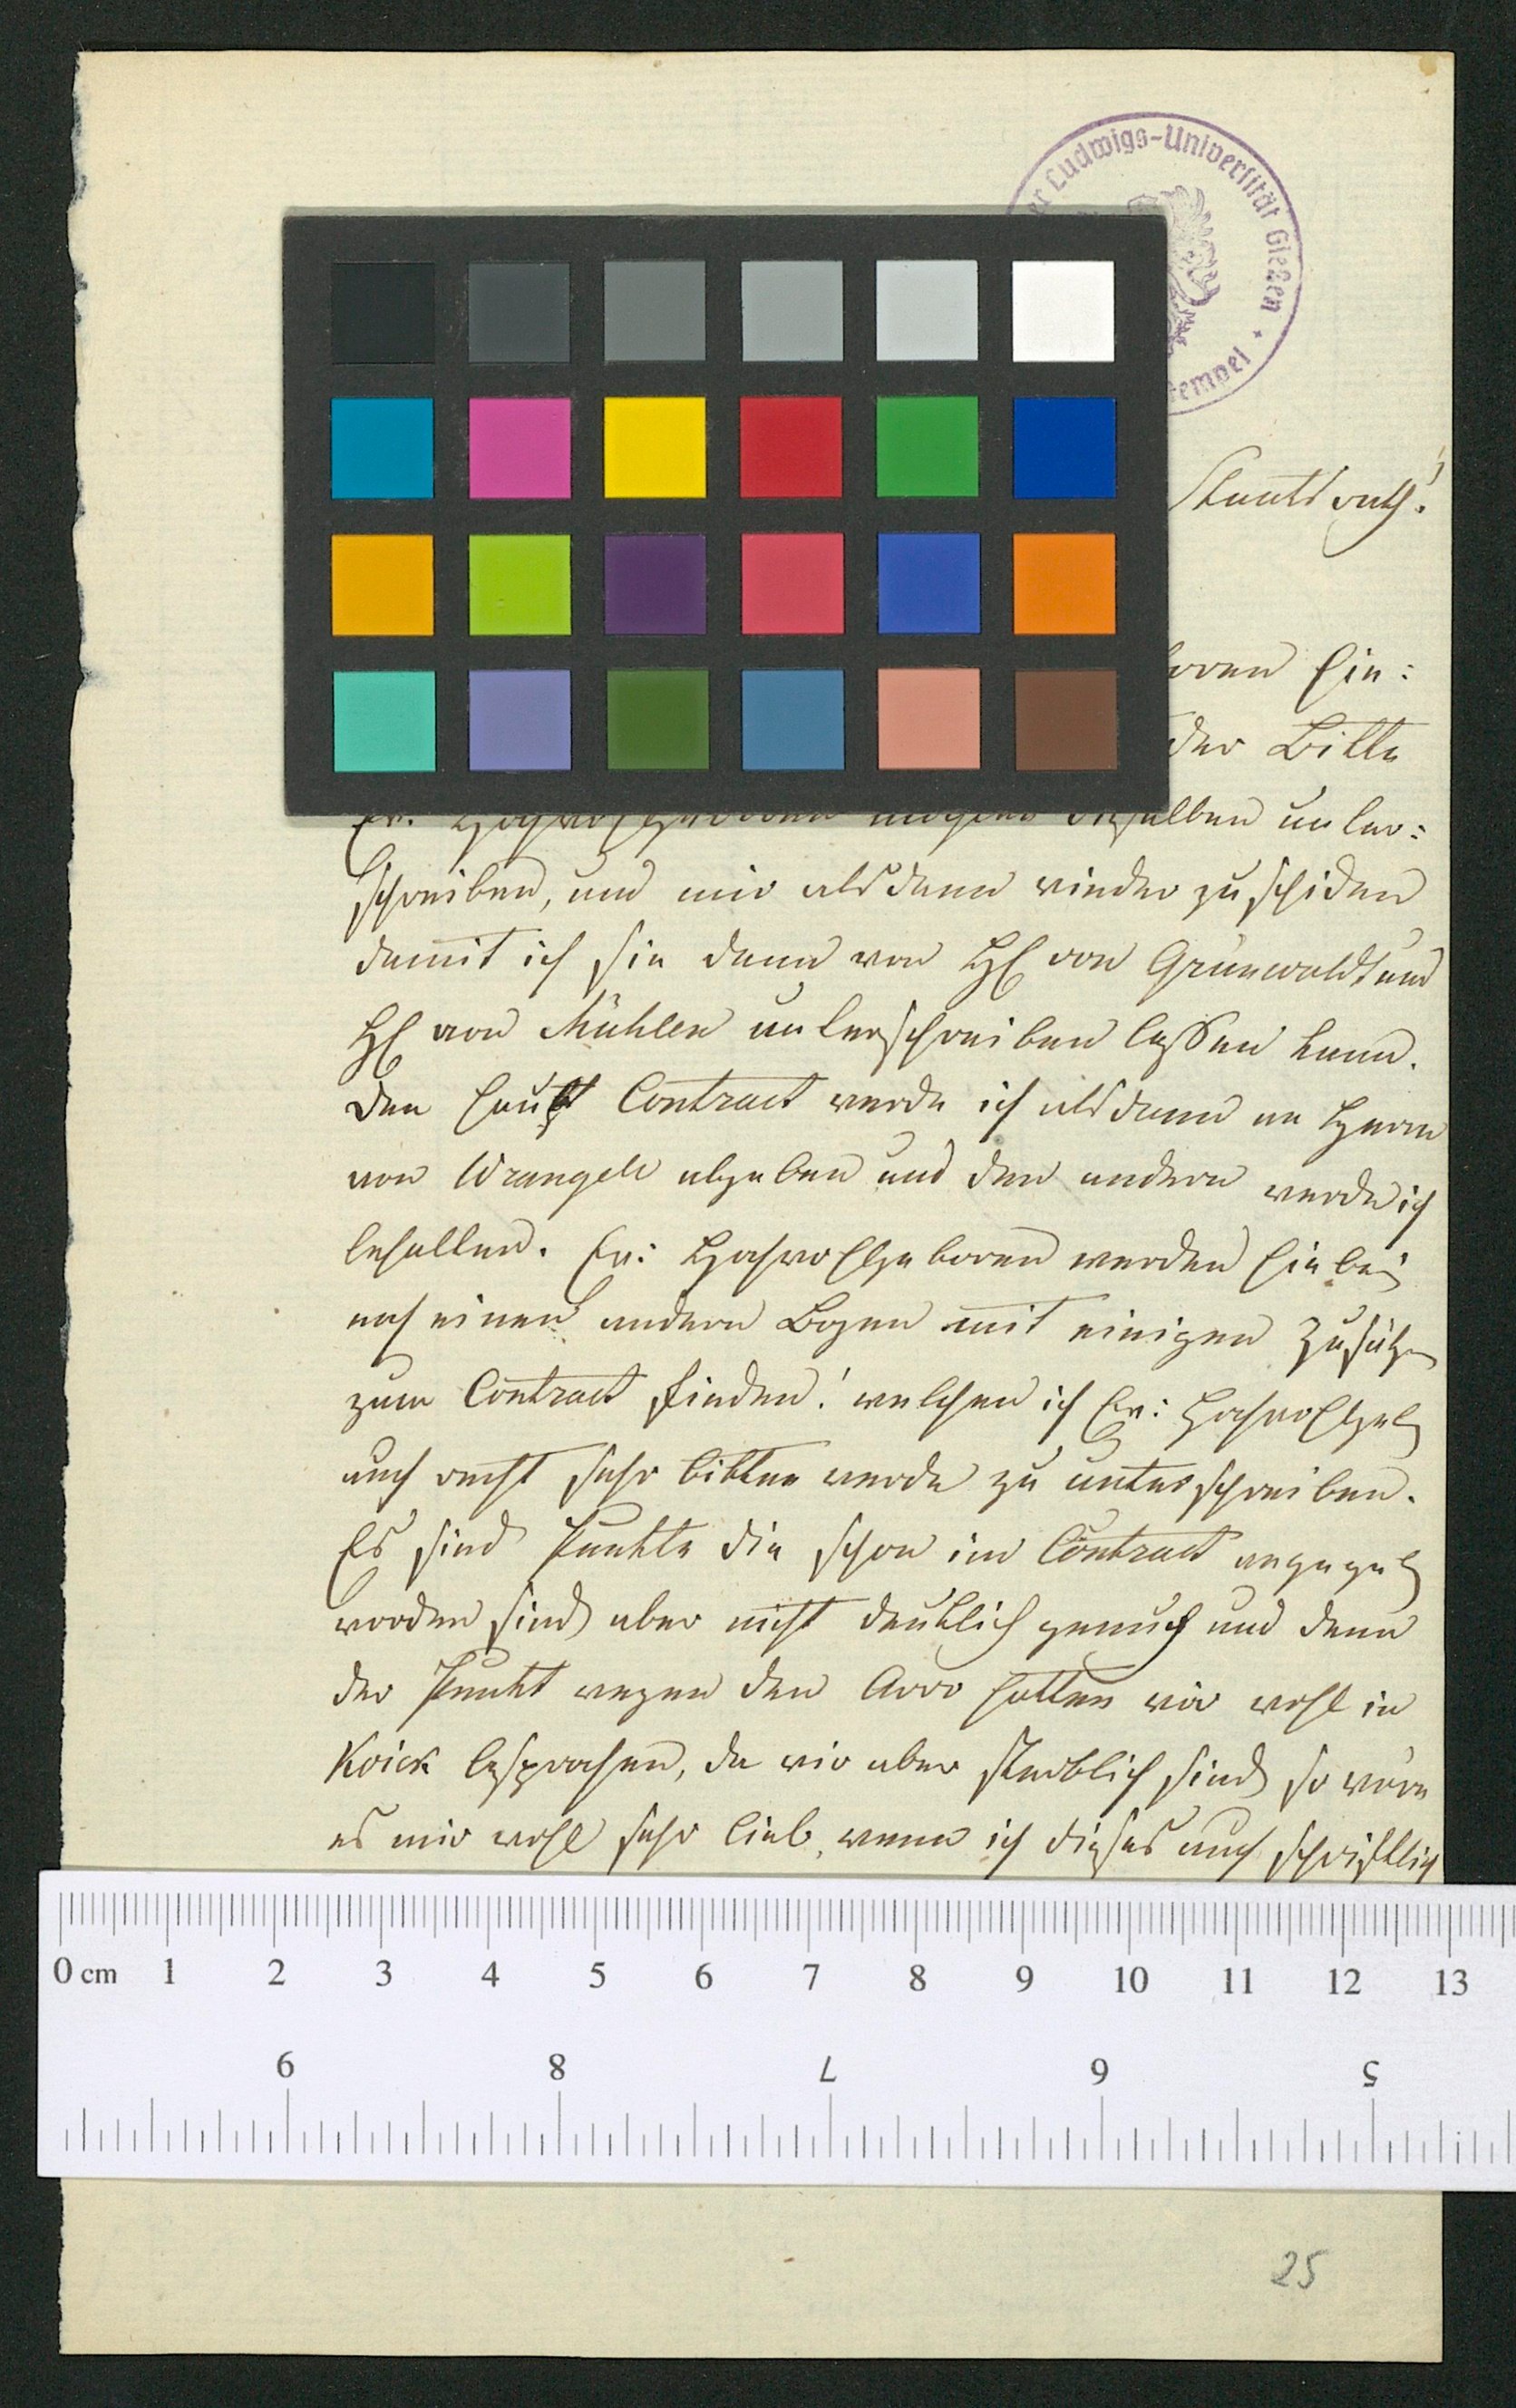 er Ludwigs-Universität Gießen
Stempel
Staatsrath!
boren hie:
der Bitte
Er. Hochwohlgeboren mögten dieselben unter:
schreiben, und mir alsdann wieder zuschiken
damit ich sie dann von HE von Grünwaldt und
HE von Mühlen unterschreiben lassen kann.
Den Haupt Contract werde ich alsdann an Herrn
von Wrangell abgeben und den andern werde ich
behalten. Er: Hochwohlgeboren werden hiebei
noch einen andern Bogen mit einigen Zusätzen
zum Contract finden! welchen ich Er: Hochwohlgeb
auch recht sehr bitten werde zu unterschreiben.
Es sind Punkte die schon im Contract angegeb
worden sind aber nicht deutlich genuch und dann
der Punkt wegen den Arro hatten wir wohl in
Koick besprochen, da wir aber sterblich sind so wäre
es mir wohl sehr lieb, wenn ich dieses auch schriftlich
0 cm 1 2 3 4 5 6 7 8 9 10 11 12 13
9 8 7 6 5
25